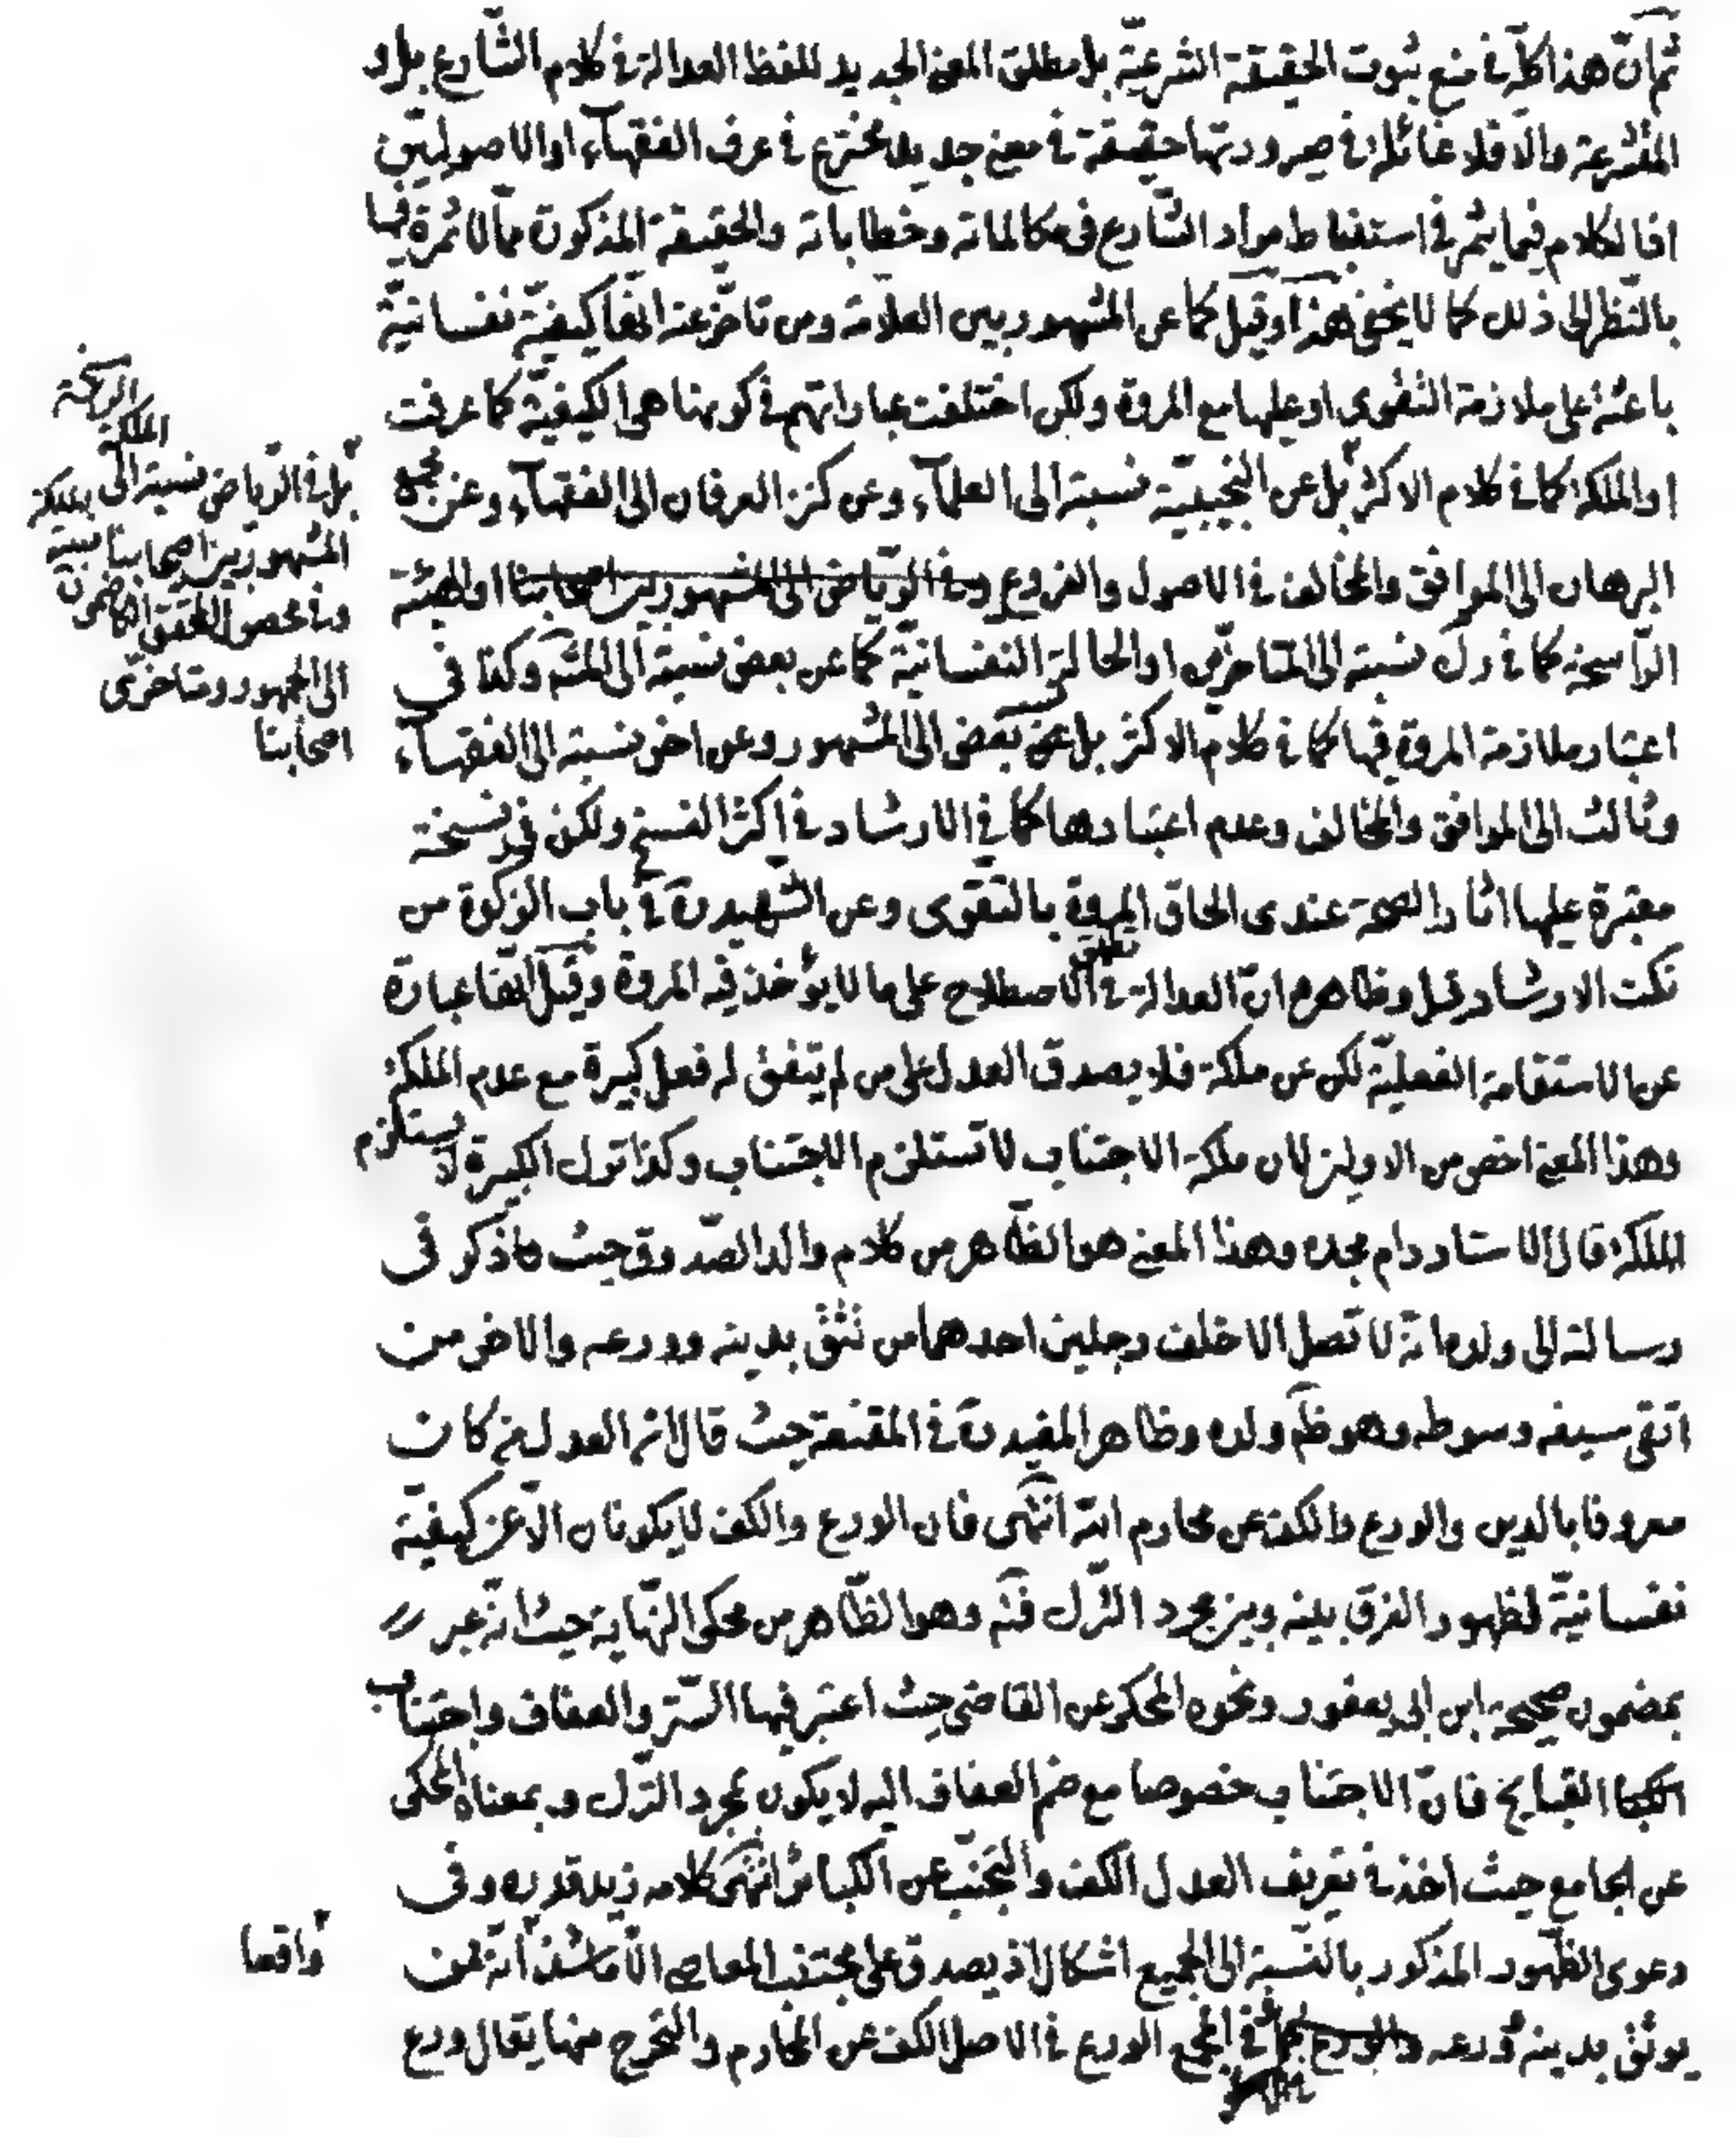 ثم ان هذا كله في منع ثبوت الحقيقة الشرعية بل مطلق المعنى الجديد للفظ العدالة في كلام الشارع بل و
المتشرعة والا فلا غائلة في صيرورتها حقيقة في معنى جديد مخترع في عرف الفقهاء او الاصوليين
اذ الكلام فيما يثمر في استنباط مراد الشارع في مكالماته وخطاباته والحقيقة المذكورة مما لا ثمرة فيها
بالنظر الى ذلك كما لا يخفى هذا وقيل كما عن المشهور بين العلامة ومن تاخر عنه انها كيفية نفسانية
باعثة على ملازمة التقوى او عليها مع المروة ولكن اختلفت عباراتهم في كونها هي الكيفية كما عرفت
او الملكة كما في كلام الاكثر بل عن النجيبية نسبته الى العلماء وعن كنز العرفان الى الفقهاء وعن مجمع
البرهان الى الموافق والمخالف في الاصول والفروع وفي الرياض الى المشهور بين اصحابنا او الهيئة
الراسخة كما في رك نسبته الى المتاخرين او الحالة النفسانية كما عن بعض نسبته الى المشه وكذا في
اعتبار ملازمة المروة فيها كما في كلام الاكثر بل عن بعض الى المشهور وعن اخر نسبته الى الفقهاء
وثالث الى الموافق والمخالف وعدم اعتبارها كما في الارشاد في اكثر النسخ ولكن في نسخة
معتبرة عليها اثار الصحة عندى الحاق المروة بالتقوى وعن الشهيد ره في باب الزكوة من
نكت الارشاد قيل وظاهره ان العدالة في الاصطلاح تطلق على ما لا يؤخذ فيه المروة وقيل انها عبارة
عن الاستقامة الفعلية لكن عن ملكة فلا يصدق العدل على من لم يتفق له فعل كبيرة مع عدم الملكة
وهذا المعنى اخص من الاولين لان ملكة الاجتناب لا تستلزم الاجتناب وكذا ترك الكبيرة لا يستلزم
الملكة قال الاستاد دام مجده وهذا المعنى هو الظاهر من كلام والد الصدوق حيث ذكر في
رسالته الى ولده انه لا تصل الا خلف رجلين احدهما من تثق بدينه وورعه والاخر من
اتقى سيفه وسوطه وهو ظ ولده وظاهر المفيد ره في المقنعة حيث قال انه العدل من كان
معروفا بالدين والورع والكف عن محارم الله انتهى فان الورع والكف لا يكونان الا عن كيفية
نفسانية لظهور الفرق بينه وبين مجرد الترك فته وهو الظاهر من محكى النهاية حيث انه عبر
بمضمون صحيحة ابن ابى يعفور ونحوه المحكى عن القاضى حيث اعتبر فيها الستر والعفاف واجتناب
القبايح فان الاجتناب خصوصا مع ضم العفاف اليه لا يكون بمجرد الترك و بمعناه المحكى
عن الجامع حيث اخذ في تعريف العدل الكف والتجنب عن الكبائر انتهى كلامه زيد قدره وفى
دعوى الظهور المذكور بالنسبة الى الجميع اشكال اذ يصدق على مجتنب المعاصى الا ما شذ انه ممن
يوثق بدينه وورعه واقعا في المجمع الورع في الاصل الكف عن المحارم والتحرج منها يقال ورع
الراسخة
الملكة
بل في الرياض نسبته الى
المشهور بين اصحابنا
الى الجمهور ومتاخرى
اصحابنا
واقعا